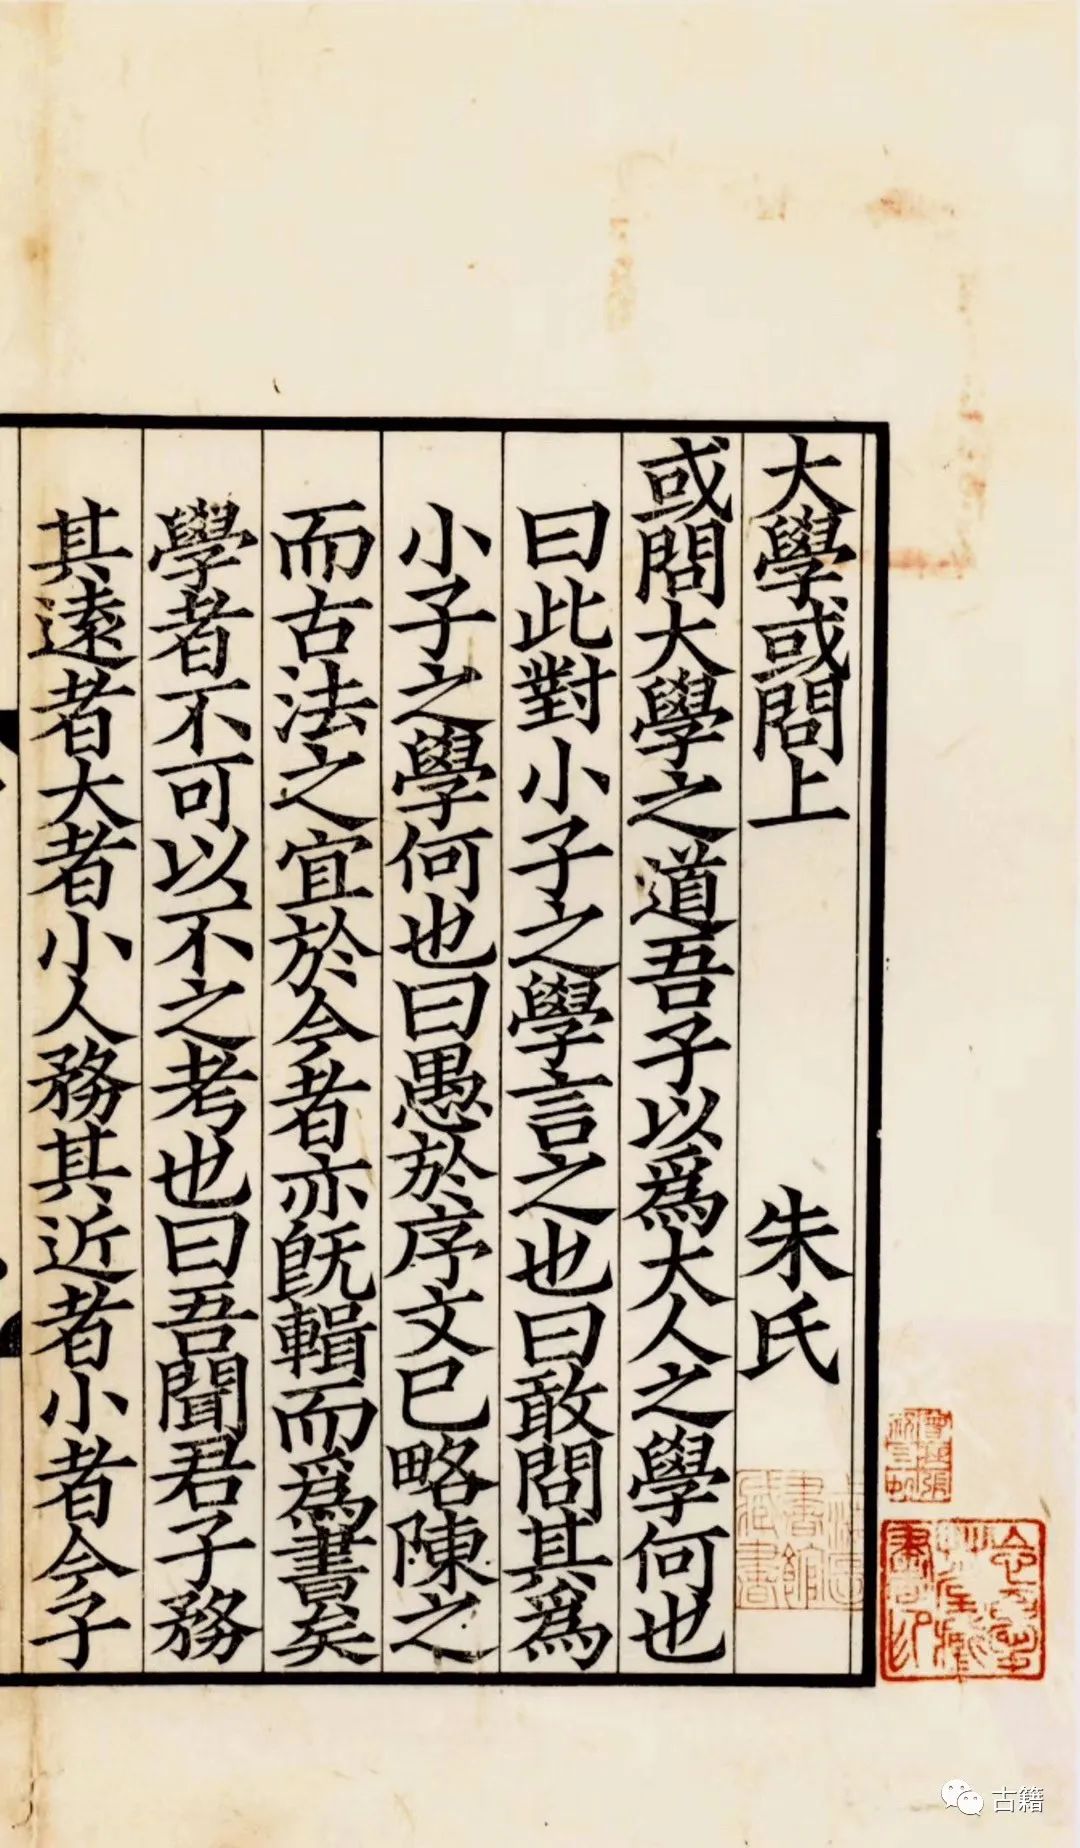 大學或問上　朱氏
或問大學之道吾子以爲大人之學何也
曰此對小子之學言之也曰敢問其爲
小子之學何也曰愚於序文已略陳之
而古法之宜於今者亦旣輯而爲書矣
學者不可以不之考也曰吾聞君子務
其遠者大者小人務其近者小者今子
古籍